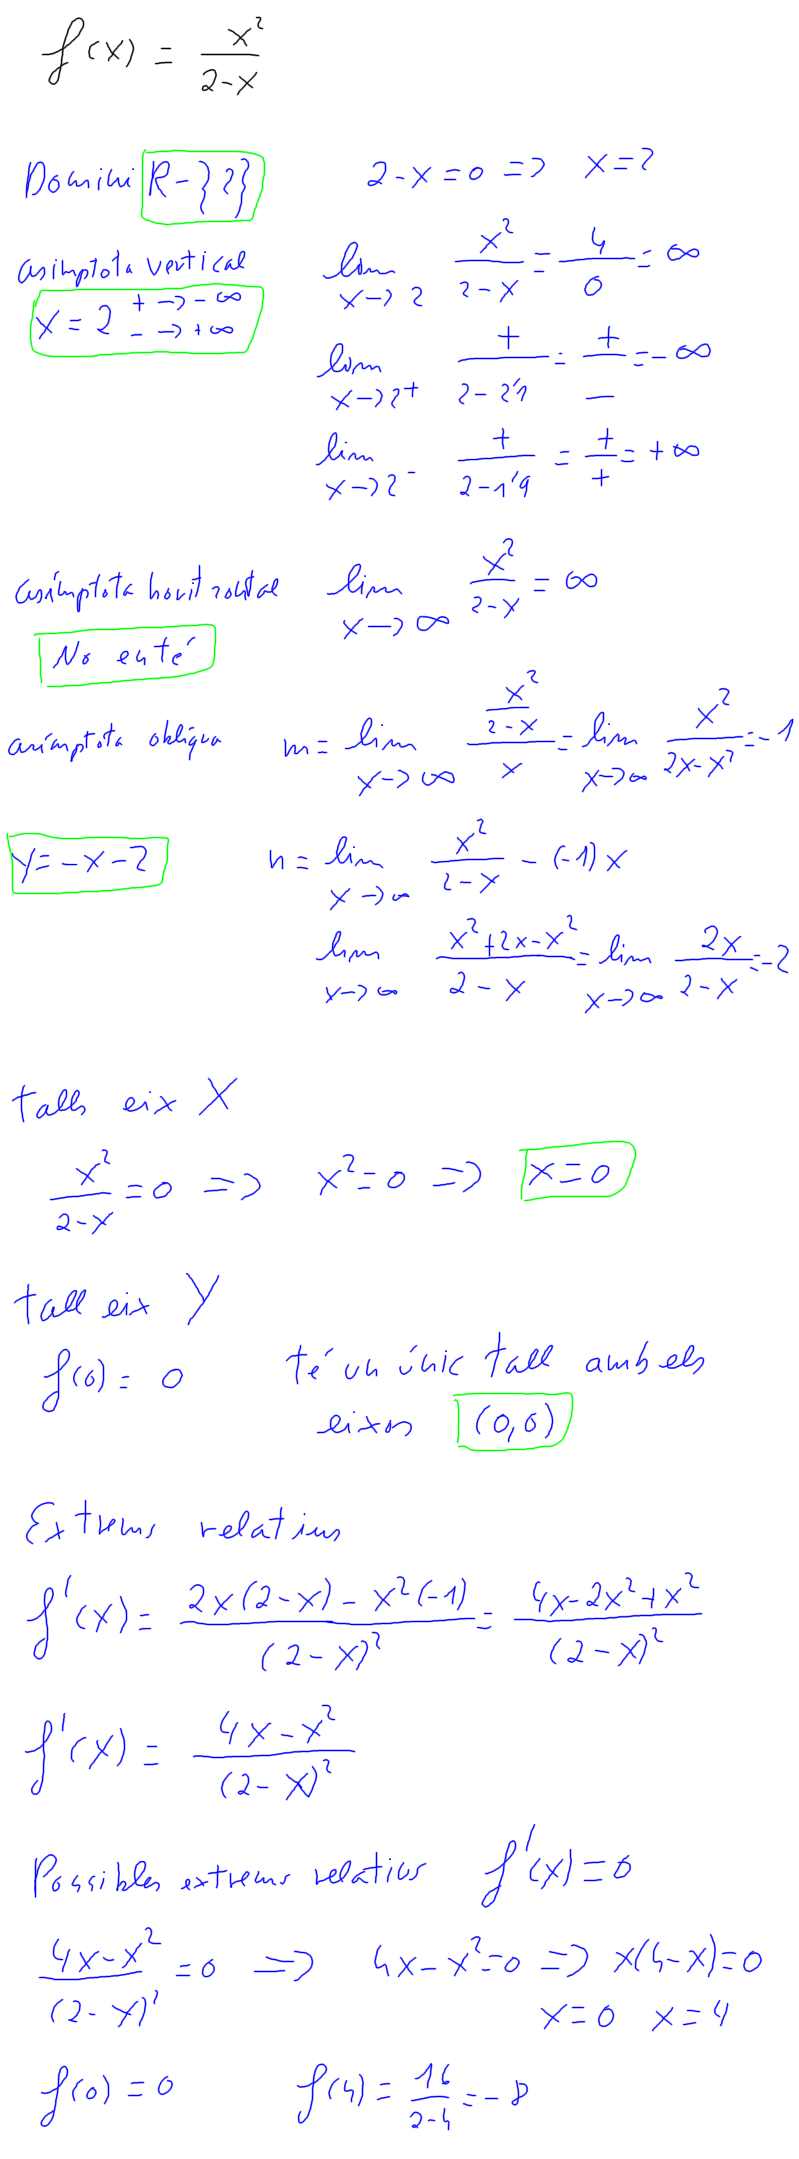 f(x) = x²/(2-x)
Domini R-{2} 2-x=0 => x=2
asimptota vertical lim x->2 x²/(2-x) = 4/0 = ∞
x=2 + -> -∞ - -> +∞
lim x->2⁺ +/(2-2'1) = +/- = -∞
lim x->2⁻ +/(2-1'9) = +/+ = +∞
asímptota horitzontal lim x->∞ x²/(2-x) = ∞
No en té
asímptota obliqua m= lim x->∞ (x²/(2-x))/x = lim x->∞ x²/(2x-x²) = -1
y=-x-2 n= lim x->∞ x²/(2-x) - (-1)x
lim x->∞ (x²+2x-x²)/(2-x) = lim x->∞ 2x/(2-x) = -2
talls eix X
x²/(2-x) = 0 => x²=0 => x=0
tall eix Y
f(0) = 0 té un únic tall amb els
eixos (0,0)
Extrems relatius
f'(x) = (2x(2-x) - x²(-1))/(2-x)² = (4x-2x²+x²)/(2-x)²
f'(x) = (4x-x²)/(2-x)²
Possibles extrems relatius f'(x)=0
(4x-x²)/(2-x)² = 0 => 4x-x²=0 => x(4-x)=0
x=0 x=4
f(0)=0 f(4) = 16/(2-4) = -8